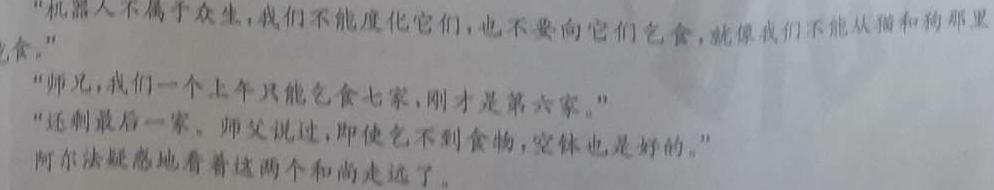 “机器人不属于众生，我们不能度化它们，也不要向它们乞食，就像我们不能从猫和狗那里
乞食。”
“师兄，我们一个上午只能乞食七家，刚才是第六家。”
“还剩最后一家。师父说过，即使乞不到食物，空钵也是好的。”
阿尔法疑惑地看着这两个和尚走远了。